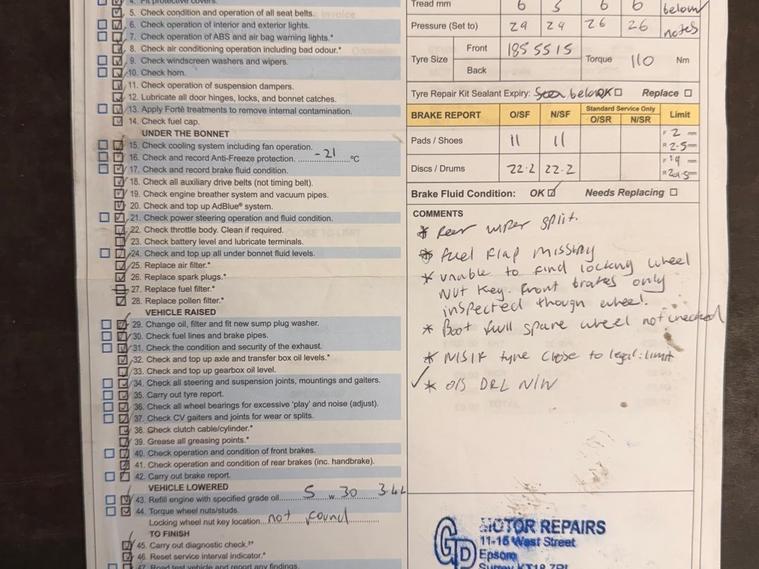 4. Fit protective covers.
5. Check condition and operation of all seat belts.
6. Check operation of interior and exterior lights.
7. Check operation of ABS and air bag warning lights.*
8. Check air conditioning operation including bad odour.*
9. Check windscreen washers and wipers.
10. Check horn.
11. Check operation of suspension dampers.
12. Lubricate all door hinges, locks, and bonnet catches.
13. Apply Forté treatments to remove internal contamination.
14. Check fuel cap.
UNDER THE BONNET
15. Check cooling system including fan operation.
16. Check and record Anti-Freeze protection. -21 °C
17. Check and record brake fluid condition.
18. Check all auxiliary drive belts (not timing belt).
19. Check engine breather system and vacuum pipes.
20. Check and top up AdBlue® system.
21. Check power steering operation and fluid condition.
22. Check throttle body. Clean if required.
23. Check battery level and lubricate terminals.
24. Check and top up all under bonnet fluid levels.
25. Replace air filter.*
26. Replace spark plugs.*
27. Replace fuel filter.*
28. Replace pollen filter.*
VEHICLE RAISED
29. Change oil, filter and fit new sump plug washer.
30. Check fuel lines and brake pipes.
31. Check the condition and security of the exhaust.
32. Check and top up axle and transfer box oil levels.*
33. Check and top up gearbox oil level.
34. Check all steering and suspension joints, mountings and gaiters.
35. Carry out tyre report.
36. Check all wheel bearings for excessive 'play' and noise (adjust).
37. Check CV gaiters and joints for wear or splits.
38. Check clutch cable/cylinder.*
39. Grease all greasing points.*
40. Check operation and condition of front brakes.
41. Check operation and condition of rear brakes (inc. handbrake).
42. Carry out brake report.
VEHICLE LOWERED
43. Refill engine with specified grade oil. 5 w 30 3.4L
44. Torque wheel nuts/studs.
Locking wheel nut key location. not found
TO FINISH
45. Carry out diagnostic check.
46. Reset service interval indicator.*
47. Road test vehicle and report any findings.
Tread mm 6 5 6 6 below
Pressure (Set to) 29 29 26 26 notes
Tyre Size Front 185 55 15 Torque 110 Nm
Back
Tyre Repair Kit Sealant Expiry: OK Replace
BRAKE REPORT O/SF N/SF Standard Service Only O/SR N/SR Limit
Pads / Shoes 11 11 F 2 mm
R 2.5 mm
Discs / Drums 22.2 22.2 F 19 mm
Brake Fluid Condition: OK Needs Replacing
COMMENTS
* rear wiper split.
* fuel flap missing
* unable to find locking wheel
nut key. front brakes only
inspected though wheel.
* Boot full spare wheel not checked
* NSIF tyre close to legal limit
* O/S DRL N/W
GD MOTOR REPAIRS
11-16 West Street
Epsom
Surrey KT18 7RL